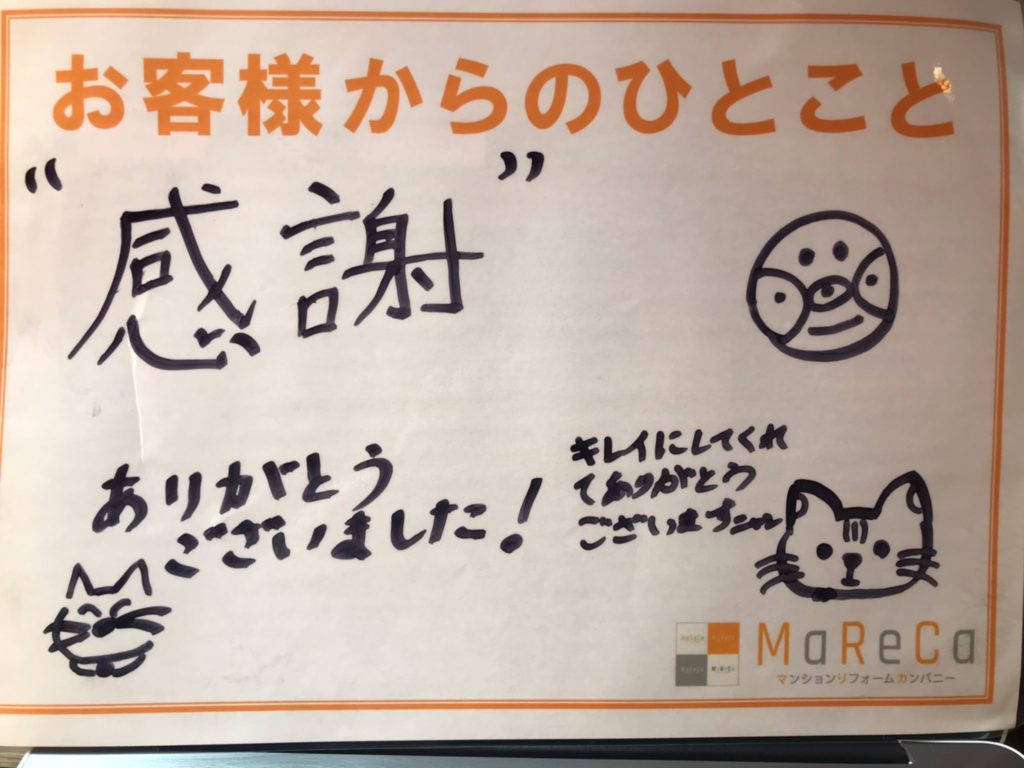 お客様からのひとこと
“感謝”
ありがとう
ございました!
キレイにしてくれ
てありがとう
ございますニャル
MaReCa
マンションリフォームカンパニー